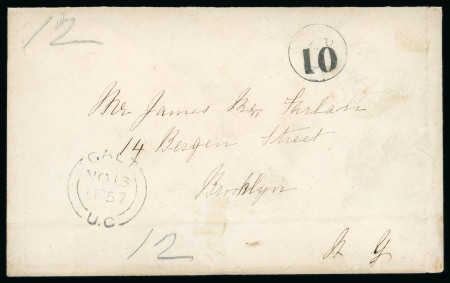 12
10
Mr James
14 Bergen Street
Brooklyn
N Y
GALT
NO 13
1857
U.C
12